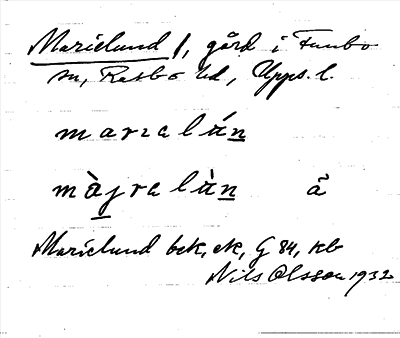 Marielund /, gård i Funbo
sn, Rasbo hd, Upps. l.
marıalún
màjralùn ã
Marielund bek, ek, G 84, kb
Nils Olsson 1932